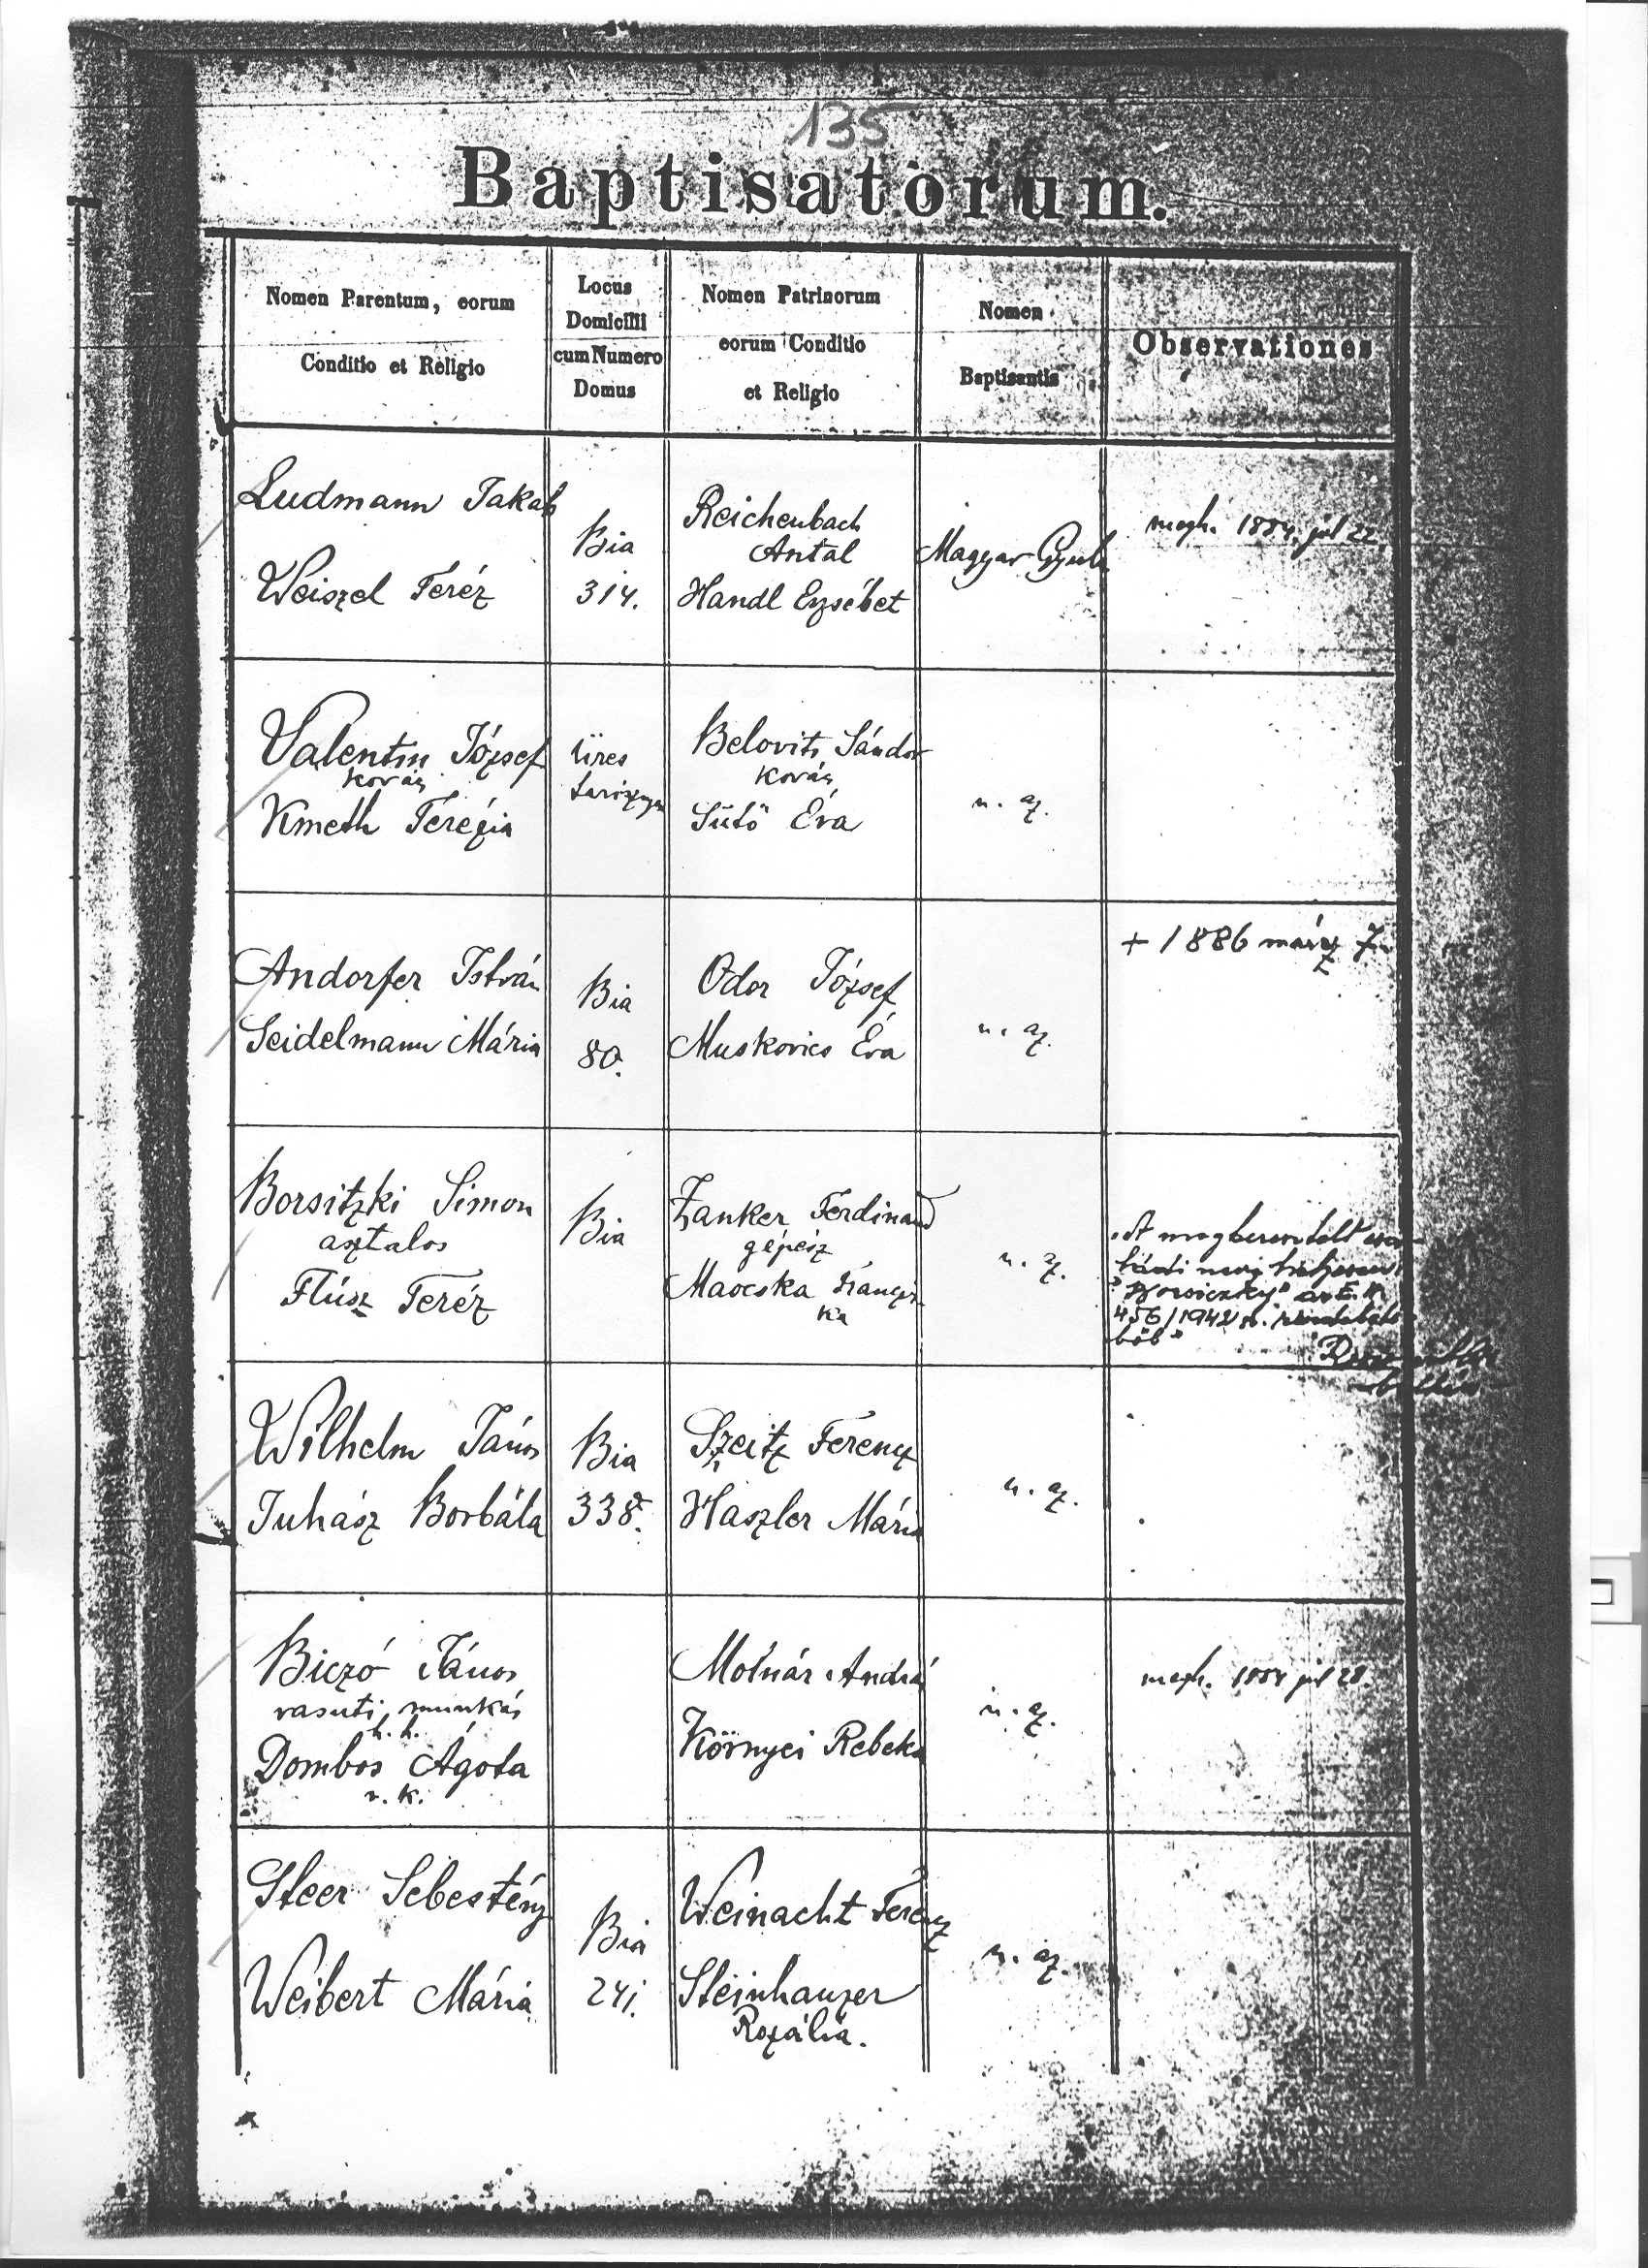 135
Baptisatorum.
Nomen Parentum, eorum
Conditio et Religio
Locus
Domicilii
cum Numero
Domus
Nomen Patrinorum
eorum Conditio
et Religio
Nomen
Baptisantis
Observationes
Ludmann Jakab
Weiszel Teréz
Bia
314.
Reichenbach
Antal
Handl Erzsébet
Magyar Gyula
megh. 1884. júl 22.
Valentin József
kovács
Kmeth Terézia
Üres
Belovits Sándor
kovács
Sütő Éva
u. az.
Andorfer István
Seidelmann Mária
Bia
80.
Odor József
Muskovics Éva
u. az.
+ 1886 márcz 7.
Borsitzki Simon
asztalos
Flúsz Teréz
Bia
Zanker Ferdinand
gépész
Maocska Francziska
u. az.
"A
456/1942
ból"
Wilhelm János
Juhász Borbála
Bia
338.
Szeitz Ferencz
Haszler Mária
u. az.
Biczó János
vasuti munkás
h. h.
Dombos Ágota
r. k.
Molnár András
Környei Rebeka
u. az.
megh. 1884 júl 28.
Steer Sebestény
Weibert Mária
Bia
241.
Weinacht Ferencz
Steinhauzer
Rozália.
u. az.